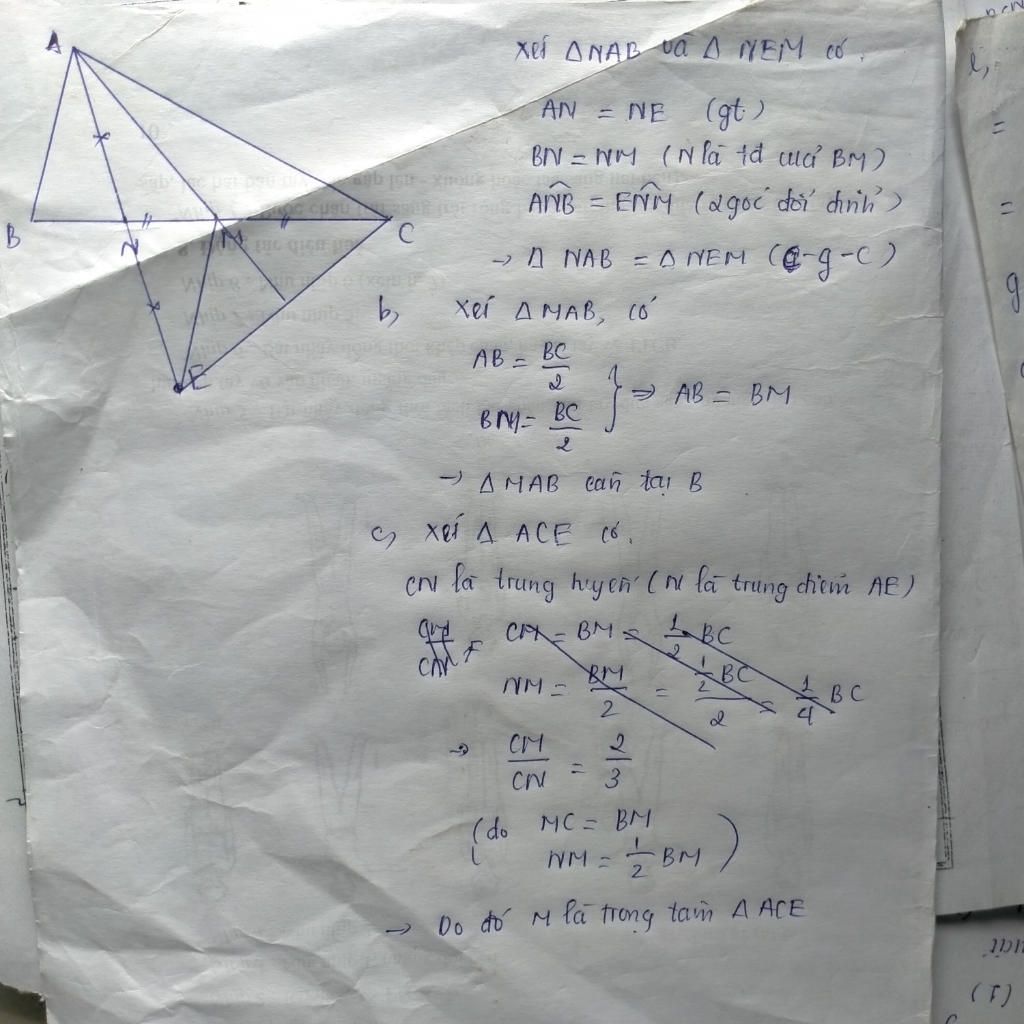 A
B
N
M
C
E
Xét ΔNAB và Δ NEM có.
AN = NE (gt)
BN = NM (N là tđ của BM)
ANB̂ = ENM̂ (2 góc đối đỉnh)
→ Δ NAB = Δ NEM (c-g-c)
b, Xét ΔMAB, có
AB = BC/2
BM = BC/2
} ⇒ AB = BM
→ ΔMAB cân tại B
c, Xét Δ ACE có.
CN là trung tuyến (N là trung điểm AE)
CM = BM = 1/2 BC
NM = BM/2 = 1/2 BC / 2 = 1/4 BC
→ CM/CN = 2/3
(do MC = BM
NM = 1/2 BM)
→ Do đó M là trọng tâm Δ ACE